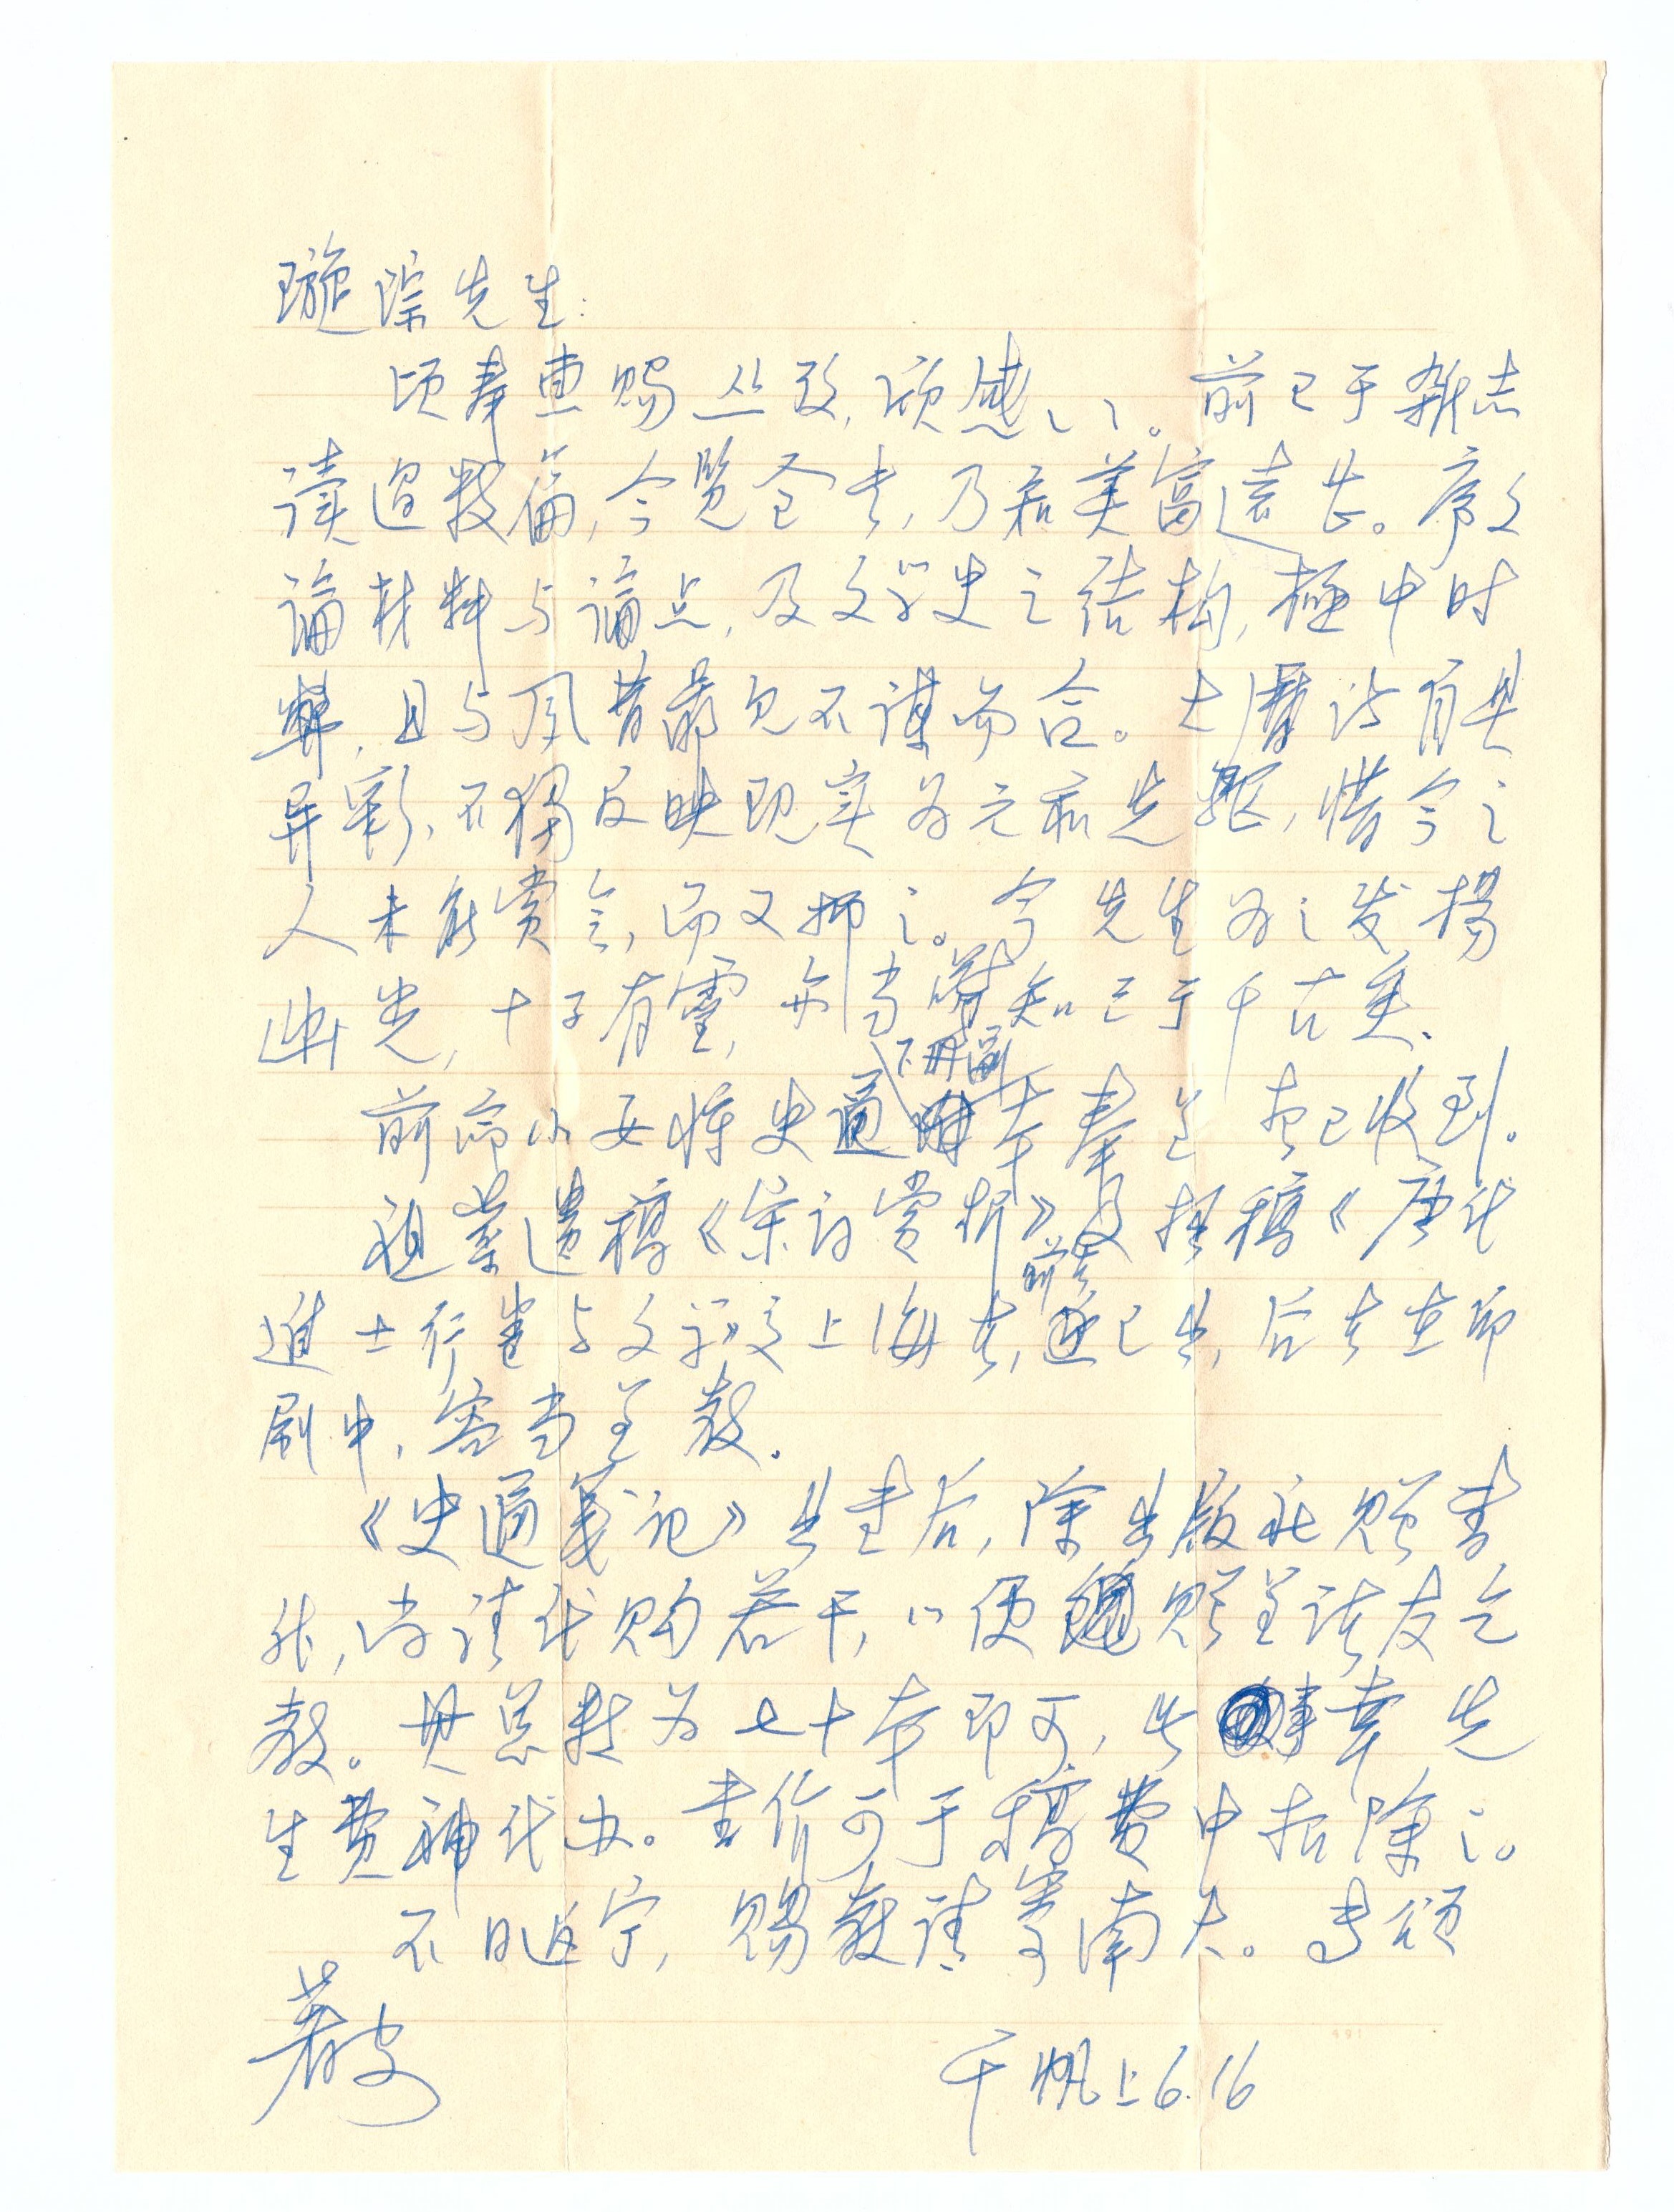 璇琮先生:
顷奉惠赐丛考,颂感々々。前已于杂志
读过数篇,今览全书,乃知美富逮此。序文
论材料与论点,及文学史之结构,极中时
弊,且与夙昔鄙见不谋而合。大历诗自具
异彩,不独反映现实为元和先驱,惜今之
人未能赏会,而又抑之。今先生为之发扬
幽光,十子有灵,亦当感知己于千古矣。
下册
前命小女将史通校本奉呈,想已收到。
祖棻遗稿《宋词赏析》及拙稿《唐代
前书
进士行卷与文学》交上海古,已出,后书在印
刷中,容当呈教。
《史通笺记》出书后,除出版社赠书
外,尚请代购若干,以便赠呈诸友乞
教。共总数为七十本即可,此事幸先
生费神代办。书价可于稿费中扣除之。
不日返宁,赐教请寄南大。专颂
著安
千帆上6.16